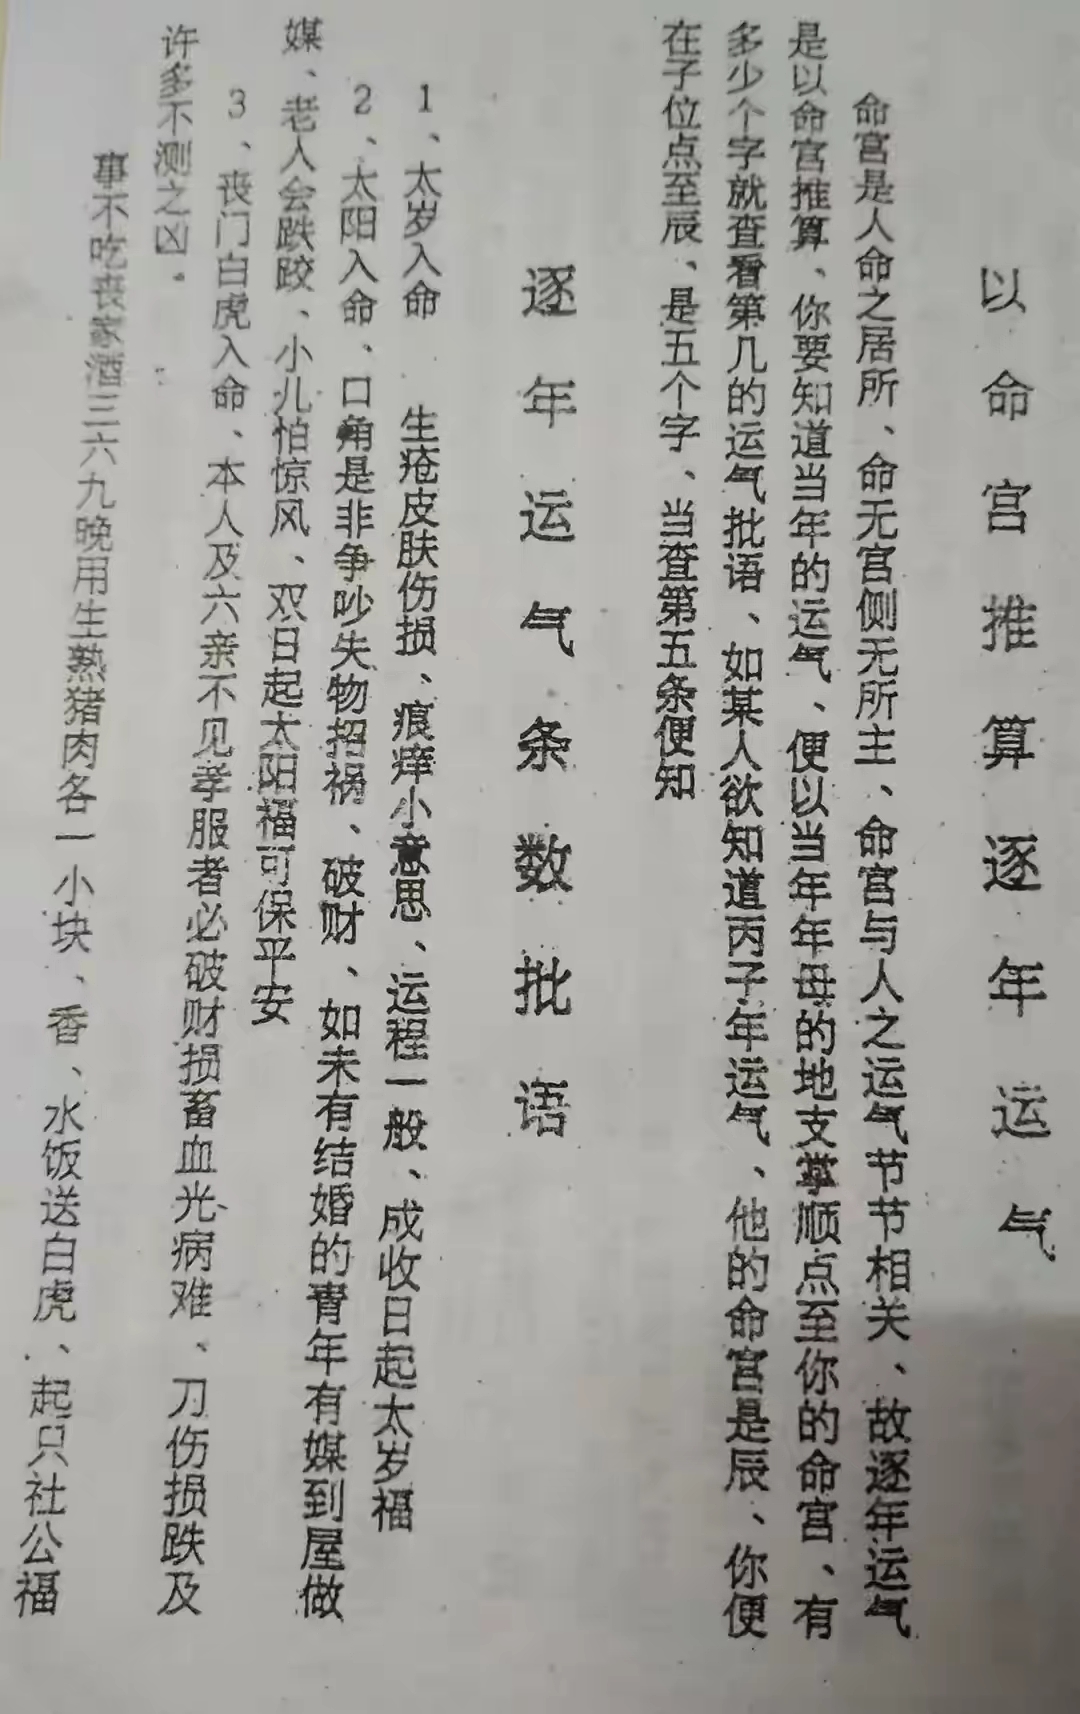 以命宫推算逐年运气
命宫是人命之居所、命无宫侧无所主、命宫与人之运气节节相关、故逐年运气
是以命宫推算、你要知道当年的运气、便以当年年毋的地支掌顺点至你的命宫、有
多少个字就查看第几的运气批语、如某人欲知道丙子年运气、他的命宫是辰、你便
在子位点至辰、是五个字、当查第五条便知
逐年运气条数批语
1、太岁入命 生疮皮肤伤损、痕痒小意思、运程一般、成收日起太岁福
2、太阳入命、口角是非争吵失物招祸、破财、如未有结婚的青年有媒到屋做
媒、老人会跌跤、小儿怕惊风、双日起太阳福可保平安
3、丧门白虎入命、本人及六亲不见孝服者必破财损畜血光病难、刀伤损跌及
许多不测之凶。
事不吃丧家酒三六九晚用生熟猪肉各一小块、香、水饭送白虎、起只社公福